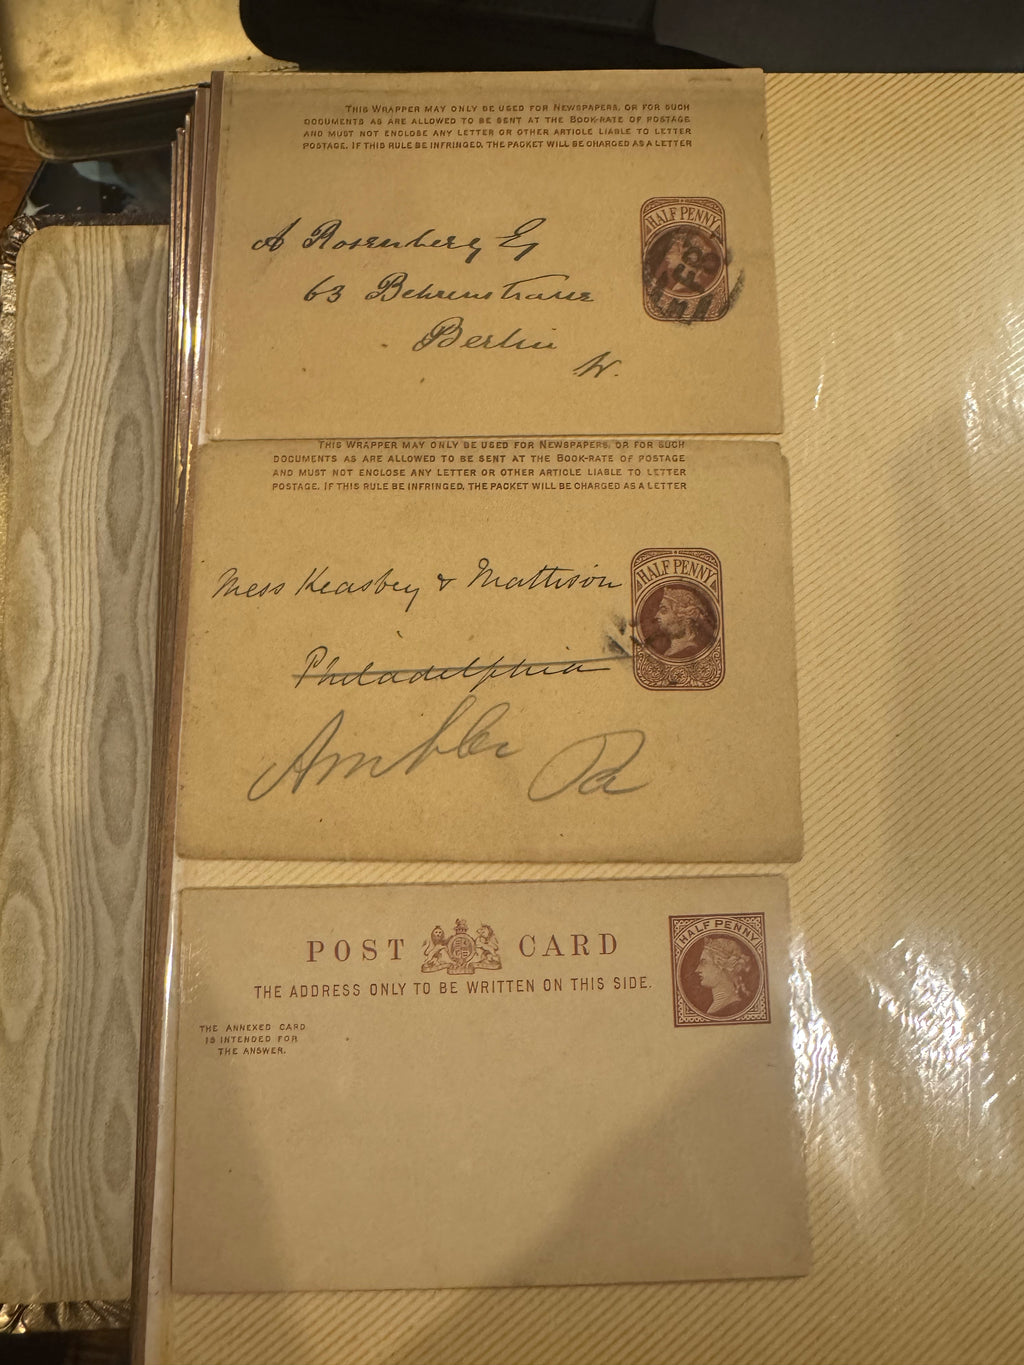 THIS WRAPPER MAY ONLY BE USED FOR NEWSPAPERS, OR FOR SUCH
DOCUMENTS AS ARE ALLOWED TO BE SENT AT THE BOOK-RATE OF POSTAGE
AND MUST NOT ENCLOSE ANY LETTER OR OTHER ARTICLE LIABLE TO LETTER
POSTAGE. IF THIS RULE BE INFRINGED, THE PACKET WILL BE CHARGED AS A LETTER
HALF PENNY
A Rosenberg Eq
63 Behrenstrasse
Berlin
W.
THIS WRAPPER MAY ONLY BE USED FOR NEWSPAPERS, OR FOR SUCH
DOCUMENTS AS ARE ALLOWED TO BE SENT AT THE BOOK-RATE OF POSTAGE
AND MUST NOT ENCLOSE ANY LETTER OR OTHER ARTICLE LIABLE TO LETTER
POSTAGE. IF THIS RULE BE INFRINGED, THE PACKET WILL BE CHARGED AS A LETTER
HALF PENNY
Mess Keasbey & Mattison
Philadelphia
Ambler Pa
POST CARD
HALF PENNY
THE ADDRESS ONLY TO BE WRITTEN ON THIS SIDE.
THE ANNEXED CARD
IS INTENDED FOR
THE ANSWER.